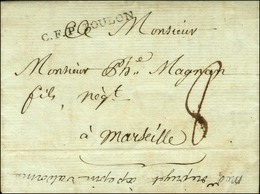 C.F.P. TOULON
A Monsieur
Monsieur Ph.e Magnan
fils, nég.t
8
à Marseille